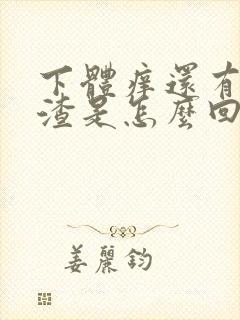 下體痒還有
渣是怎麼回
姜麗鈞